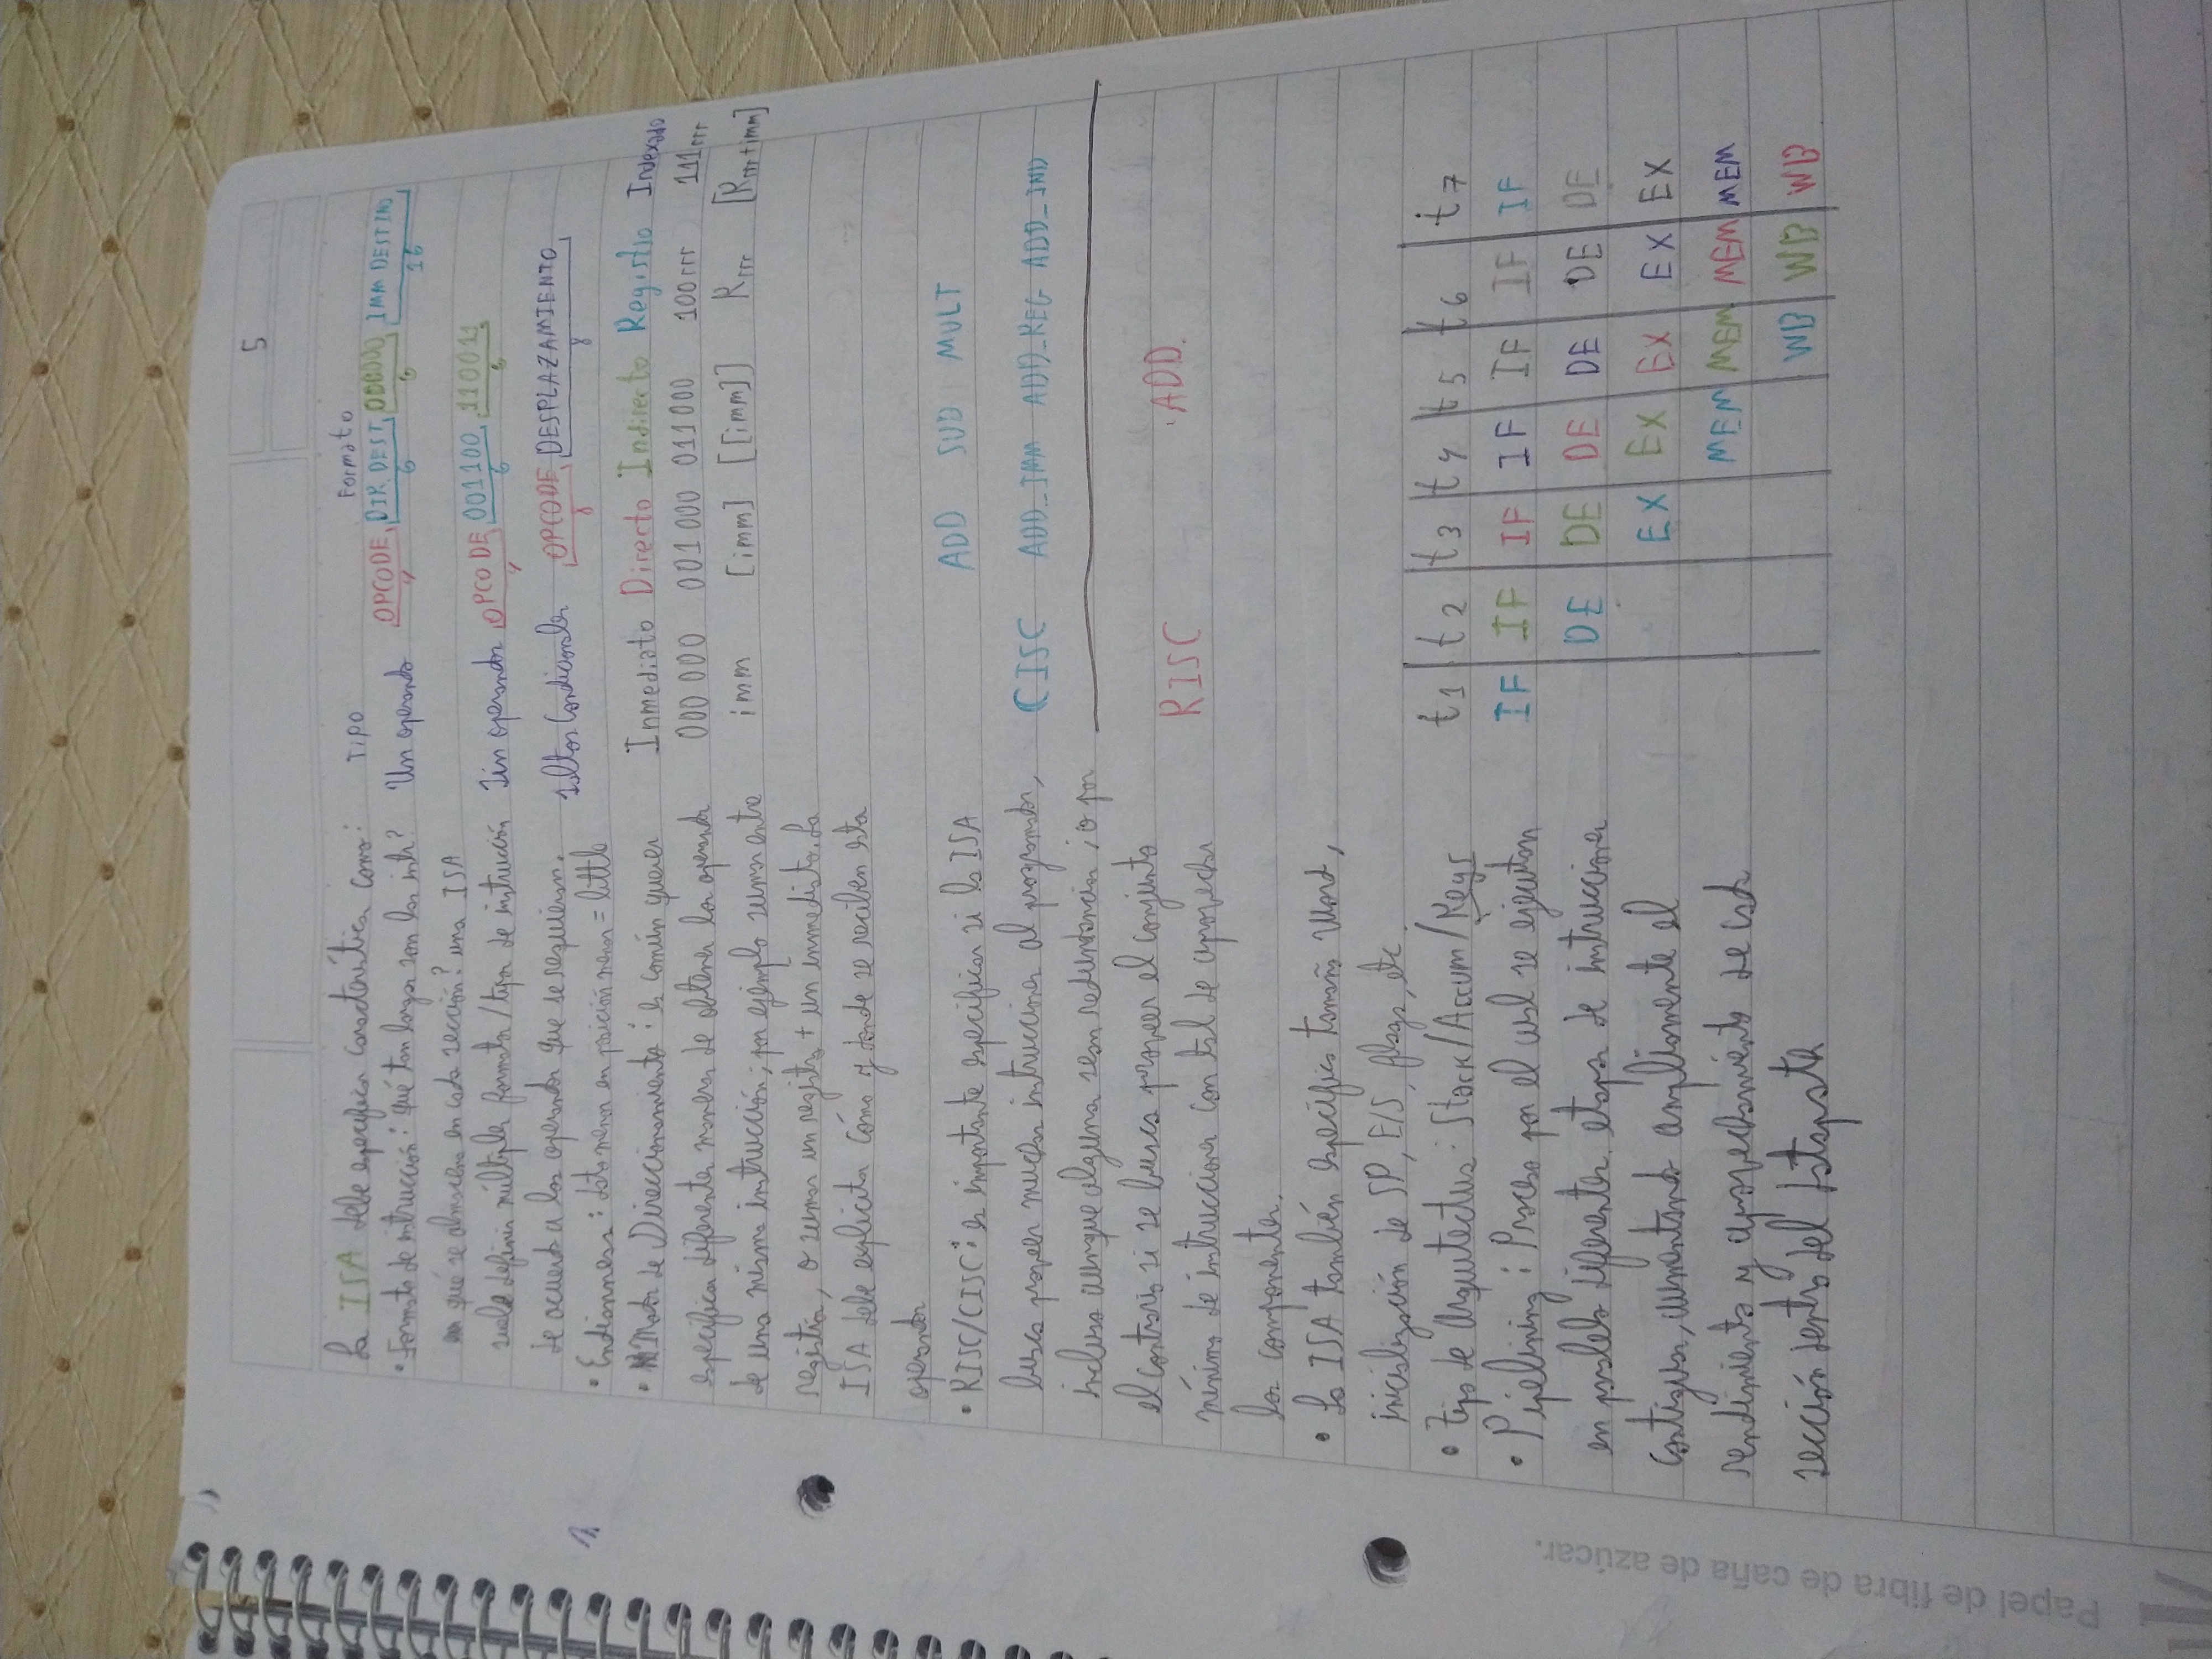 5
La ISA debe especificar característica como:
• Formato de intrucción: qué tan larga son las intr?
en qué se almacena en cada sección? una ISA
suele definir múltiples formatos/tipos de intrucción
de acuerdo a los operandos que se requieran.
• Endianness: dato menor en posición menor = little
• Modos de Direccionamiento: es común querer
especificar diferentes maneras de obtener los operandos
de una misma intrucción; por ejemplo sumar entre
registros, o sumar un registro + un inmediato. La
ISA debe explicitar cómo y donde se reciben estos
operandos
• RISC/CISC: es importante especificar si la ISA
busca proveer muchas intrucciones al programador,
incluso aunque algunas sean redundancias; o por
el contrario si se busca proveer el conjunto
mínimo de intrucciones con tal de aprovechar
los componentes.
• La ISA también especifica tamaño Word,
inicialización de SP, E/S, flags, etc.
• Tipo de Arquitectura: Stack/Accum/Regs
• Pipelining: Proceso por el cual se ejecutan
en paralelo diferentes etapas de intrucciones
contiguas, aumentando ampliamente el
rendimiento y aprovechamiento de cada
sección dentro del datapath
TIPO Formato
Un operando OPCODE DIR DEST 000000 IMM DESTINO
4 6 6 16
Sin operandos OPCODE 001100 110011
4 6 6
Saltos Condicionales OPCODE DESPLAZAMIENTO
8 8
Inmediato Directo Indirecto Registro Indexado
000 000 001 000 011 000 100rrr 111rrr
imm [imm] [[imm]] Rrrr [Rrrr+imm]
ADD SUB MULT
CISC ADD_IMM ADD_REG ADD_IND
RISC ADD.
t1 t2 t3 t4 t5 t6 t7
IF IF IF IF IF IF IF
DE DE DE DE DE DE
EX EX EX EX EX
MEM MEM MEM MEM
WB WB WB
Papel de fibra de caña de azúcar.